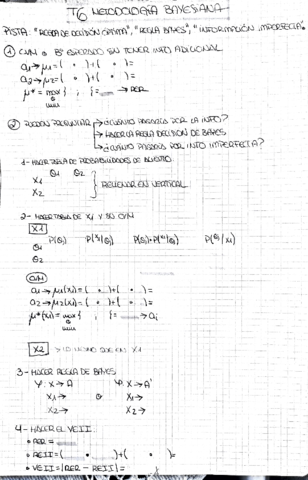 T6 METODOLOGÍA BAYESIANA
PISTA: "REGLA DE DECISIÓN ÓPTIMA", "REGLA BAYES", "INFORMACIÓN IMPERFECTA"
① CVN o Bº ESPERADO SIN TENER INFO ADICIONAL
a₁→μ₁=( · )+( · )=
a₂→μ₂=( · )+( · )=
μ*= max { ; }= → RER
o
min
② PUEDEN PREGUNTAR → ¿CUÁNTO PAGARÍAS POR LA INFO?
→ HACER LA REGLA DECISIÓN DE BAYES
→ ¿CUÁNTO PAGARÍAS POR INFO IMPERFECTA?
1- HACER TABLA DE PROBABILIDADES DE
θ₁ θ₂
X₁
X₂
RELLENAR EN VERTICAL
2- HACER TABLA DE X₁ Y SU CVN
X1
P(θ₁) P(X₁/θ₁) P(θ₁)·P(X₁/θ₁) P(θ₁/X₁)
θ₁
θ₂
CVN
a₁→μ₁(X₁)=( · )+( · )=
a₂→μ₂(X₁)=( · )+( · )=
μ*(X₁)= max { ; }= → ai
o
min
X2 → LO MISMO QUE EN X1
3- HACER REGLA DE BAYES
Ψ: X→A Ψ: X→A'
X₁→ o X₁→
X₂→ X₂→
4- HACER EL VEII
• RER =
• REII=( · )+( · )=
• VEII=|RER - REII|=